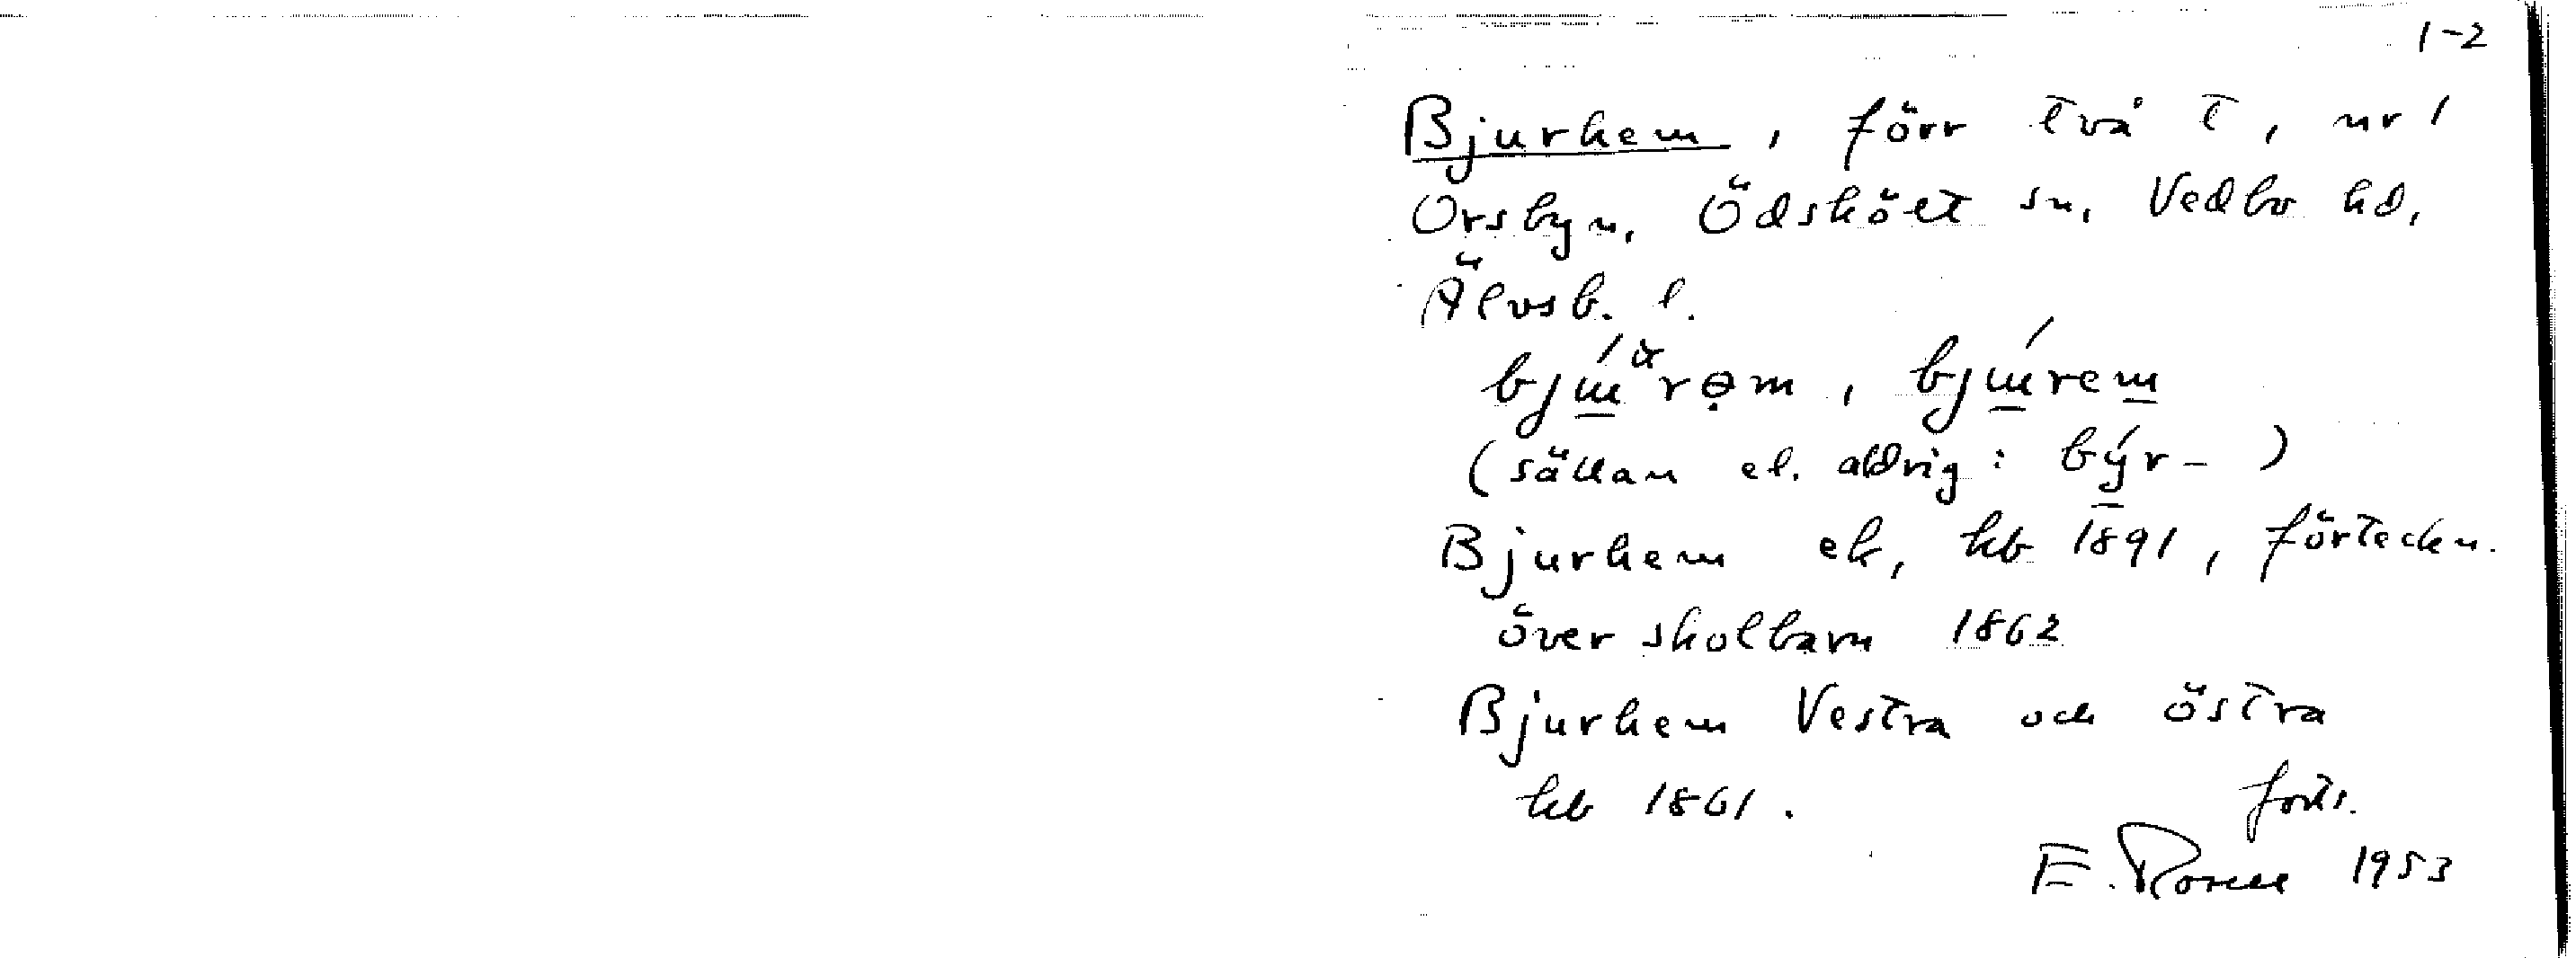 1-2
Bjurhem, förr två t, nr 1
Orsbyn, Ödskölt sn, Vedbo hd,
Älvsb. l.
(sällan el. aldrig: býr- )
Bjurhem ek, kb 1891, förteckn.
över skolbarn 1862
Bjurhem Vestra och östra
kb 1861. forts.
E. 1953